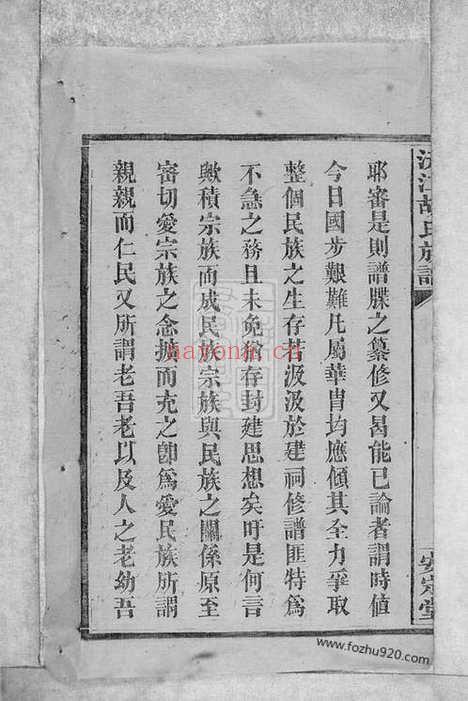 江胡氏族譜
安定堂
耶審是則譜牒之纂修又曷能已論者謂時值
今日國步艱難凡屬華胄均應傾其全力爭取
整個民族之生存若汲汲於建祠修譜匪特為
不急之務且未免猶存封建思想矣吁是何言
歟積宗族而成民族宗族與民族之關係原至
密切愛宗族之念擴而充之卽為愛民族所謂
親親而仁民又所謂老吾老以及人之老幼吾
nayona.cn
www.fozhu920.com